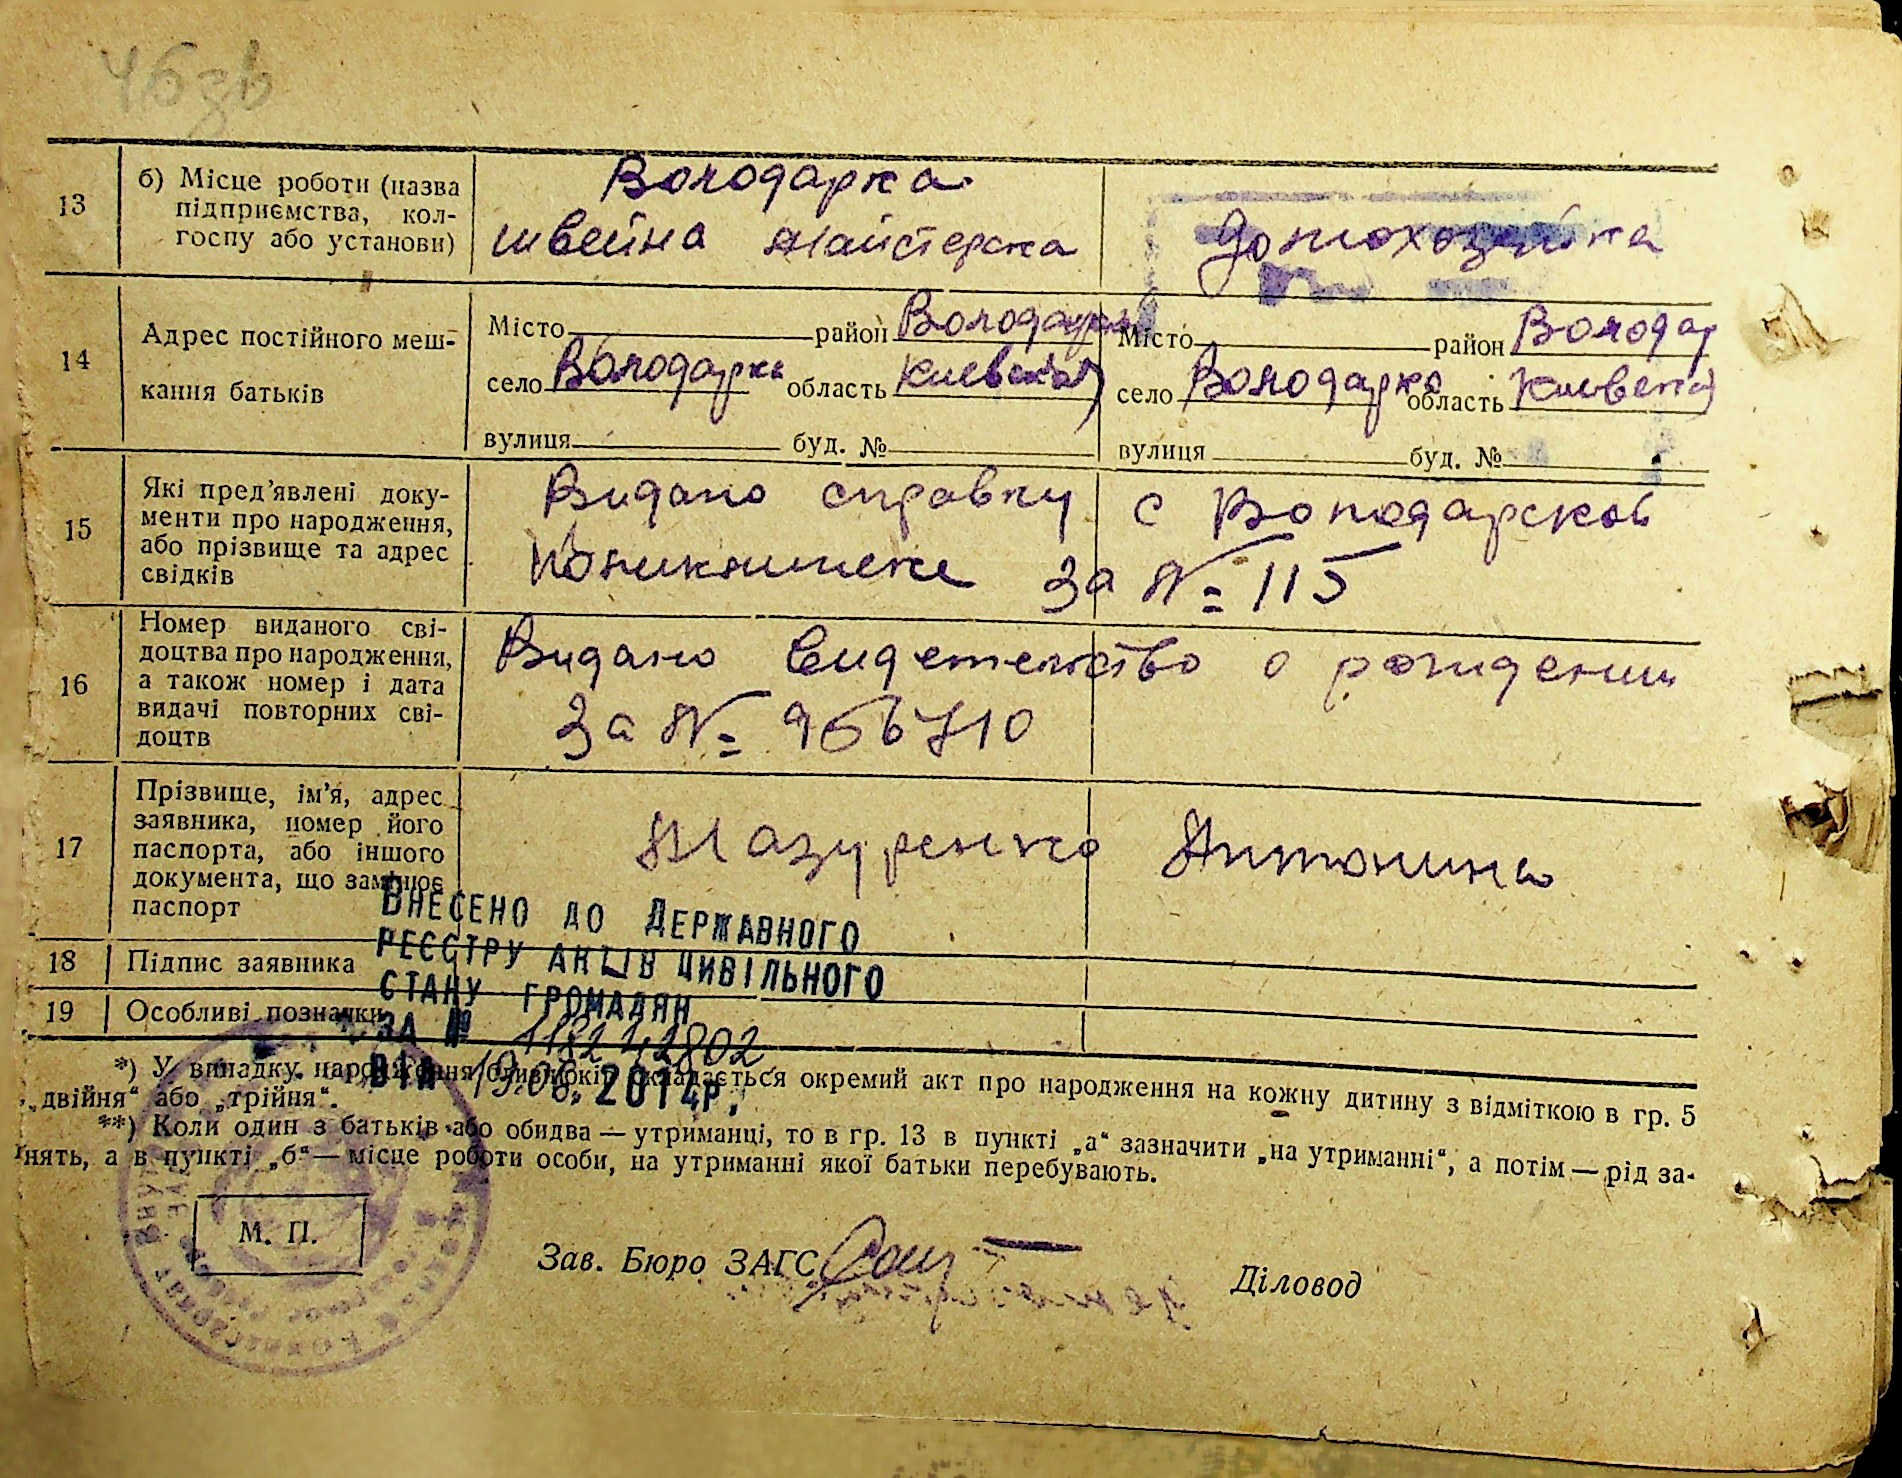 46зв
13
б) Місце роботи (назва
підприємства, кол-
госпу або установи)
Володарка
швейна майстерска
домохозяйка
14
Адрес постійного меш-
кання батьків
Місто район Володарск
село Володарка область Киевская
вулиця буд. №
Місто район Володар
село Володарка область Киевская
вулиця буд. №
15
Які пред'явлені доку-
менти про народження,
або прізвище та адрес
свідків
Видано справку с Володарской
За № 115
16
Номер виданого сві-
доцтва про народження,
а також номер і дата
видачі повторних сві-
доцтв
Видано свидетельство о рождении
За № 966710
17
Прізвище, ім'я, адрес
заявника, номер його
паспорта, або іншого
документа, що замінює
паспорт
Мазуренко Антонина
18
Підпис заявника
19
Особливі позначки
Внесено до Державного
реєстру актів цивільного
стану громадян
за №
від 19.06. 2014р.
*) У випадку народження близнюків складається окремий акт про народження на кожну дитину з відміткою в гр. 5
„двійня“ або „трійня“.
**) Коли один з батьків або обидва — утриманці, то в гр. 13 в пункті „а“ зазначити „на утриманні“, а потім — рід за-
нять, а в пункті „б“ — місце роботи особи, на утриманні якої батьки перебувають.
М. П.
Зав. Бюро ЗАГС
Діловод